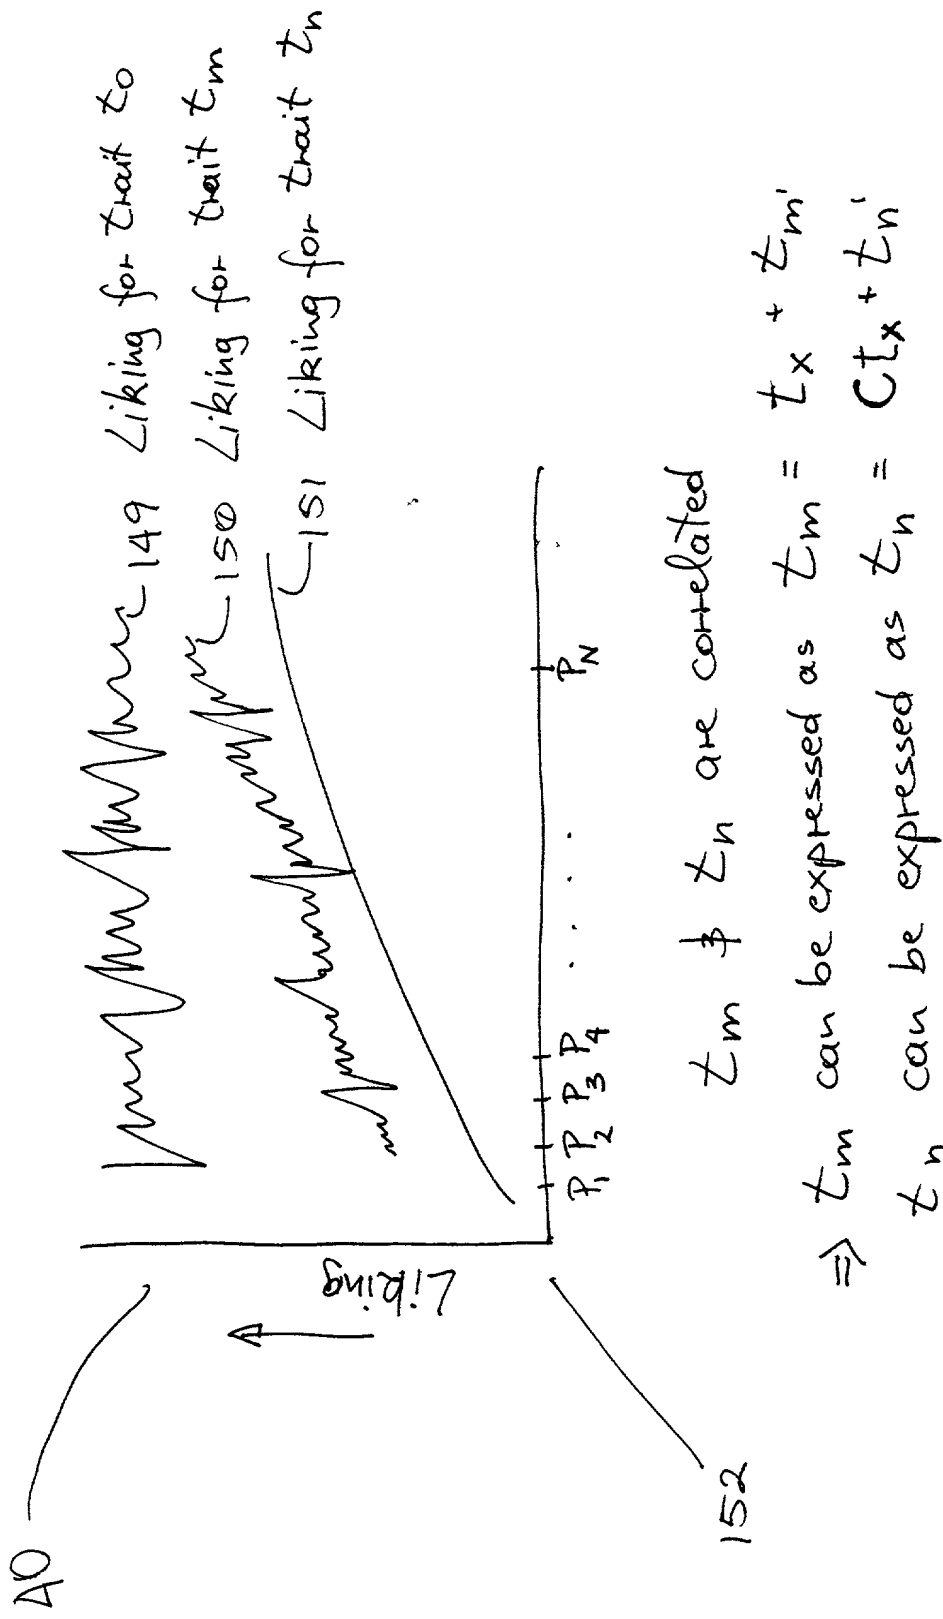 40
149 Liking for trait to
150 Liking for trait tm
151 Liking for trait tn
Liking
P1 P2 P3 P4 . . . PN
152
tm & tn are correlated
⇒ tm can be expressed as tm = tx + tm'
tn can be expressed as tn = Ctx + tn'